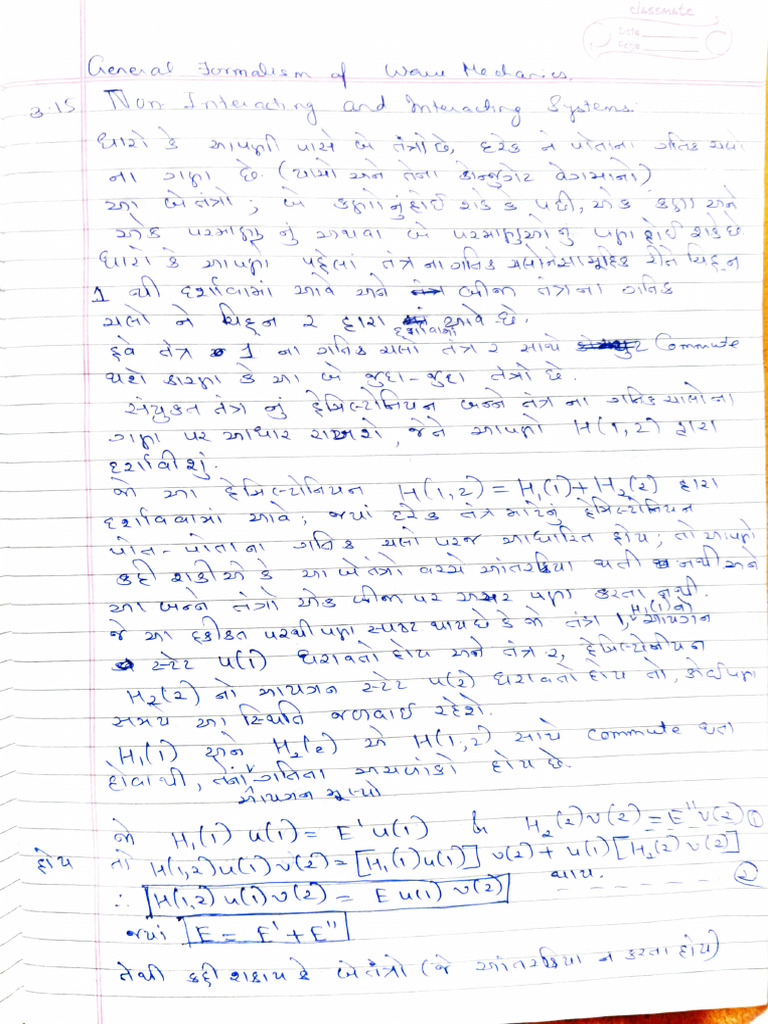 classmate
Date
Page
General Formalism of Wave Mechanics.
3.15 Non-Interacting and Interacting Systems.
ધારો કે આપણી પાસે બે તંત્રો છે, દરેક ને પોતાના ગતિક ચલો
ના ગણ છે. (યામો અને તેના કોન્જુગેટ વેગમાનો)
આ બે તંત્રો; બે કણોનું હોઈ શકે કે પછી, એક કણ અને
એક પરમાણુ નું અથવા બે પરમાણુઓનું પણ હોઈ શકે છે.
ધારો કે આપણ પહેલાં તંત્રના ગતિક ચલોને સામૂહિક રીતે ચિહ્ન
1 થી દર્શાવામાં આવે અને બીજા તંત્રના ગતિક
ચલો ને ચિહ્ન ૨ દ્વારા દર્શાવામાં આવે છે.
હવે તંત્ર 1 ના ગતિક ચલો તંત્ર ૨ સાથે Commute
થશે કારણ કે આ બે જુદા-જુદા તંત્રો છે.
સંયુક્ત તંત્ર નું હેમિલ્ટોનિયન બન્ને તંત્ર ના ગતિક ચાલોના
ગણ પર આધાર રાખશે, જેને આપણે H(1,2) દ્વારા
દર્શાવીશું.
જો આ હેમિલ્ટોનિયન H(1,2) = H₁(1) + H₂(2) દ્વારા
દર્શાવવામાં આવે; જ્યાં દરેક તંત્ર માટેનું હેમિલ્ટોનિયન
પોત-પોતાના ગતિક ચલો પરજ આધારિત હોય; તો આપણે
કહી શકીએ કે આ બે તંત્રો વચ્ચે આંતરક્રિયા થતી નથી અને
આ બન્ને તંત્રો એક બીજા પર અસર પણ કરતા નથી.
જે આ હકીકત પરથી પણ સ્પષ્ટ થાય છે કે જો તંત્ર 1, H₁(1) નો આયગન
સ્ટેટ u(1) ધરાવતો હોય અને તંત્ર ૨, હેમિલ્ટોનીયન
H₂(2) નો આયગન સ્ટેટ υ(2) ધરાવતો હોય તો, કોઈપણ
સમયે આ સ્થિતિ જળવાઈ રહેશે.
H₁(1) અને H₂(2) એ H(1,2) સાથે commute થતા
હોવાથી, તેનાં આયગન મૂલ્યો ગતિના અચળાંકો હોય છે.
જો H₁(1) u(1) = E' u(1) & H₂(2) υ(2) = E'' υ(2) ①
હોય તો H(1,2) u(1) υ(2) = [H₁(1) u(1)] υ(2) + u(1) [H₂(2) υ(2)]
∴ H(1,2) u(1) υ(2) = E u(1) υ(2) થાય. ②
જ્યાં E = E' + E''
તેથી કહી શકાય કે બે તંત્રો (જે આંતરક્રિયા ન કરતા હોય)